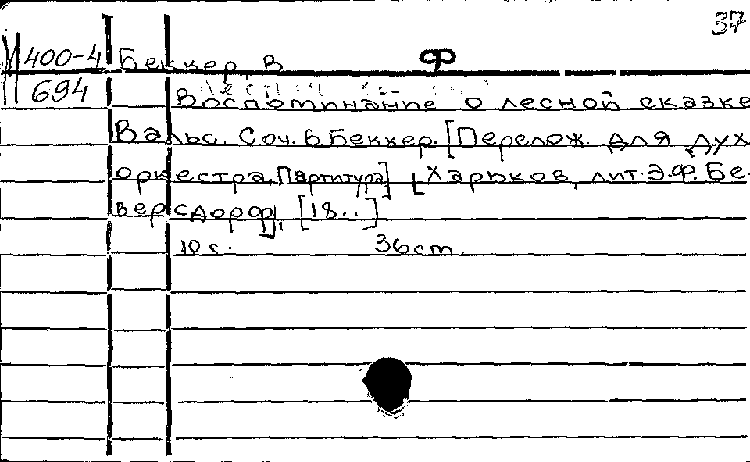 37
М 400-4 Беккер, В. Ф
694 Воспоминание о лесной сказке
Вальс. Соч. В. Беккер. [Перелож. для дух.
оркестра. Партитура] [Харьков, лит. Э.Ф. Бе-
версдорф], [18..]
10 с. 36 ст.